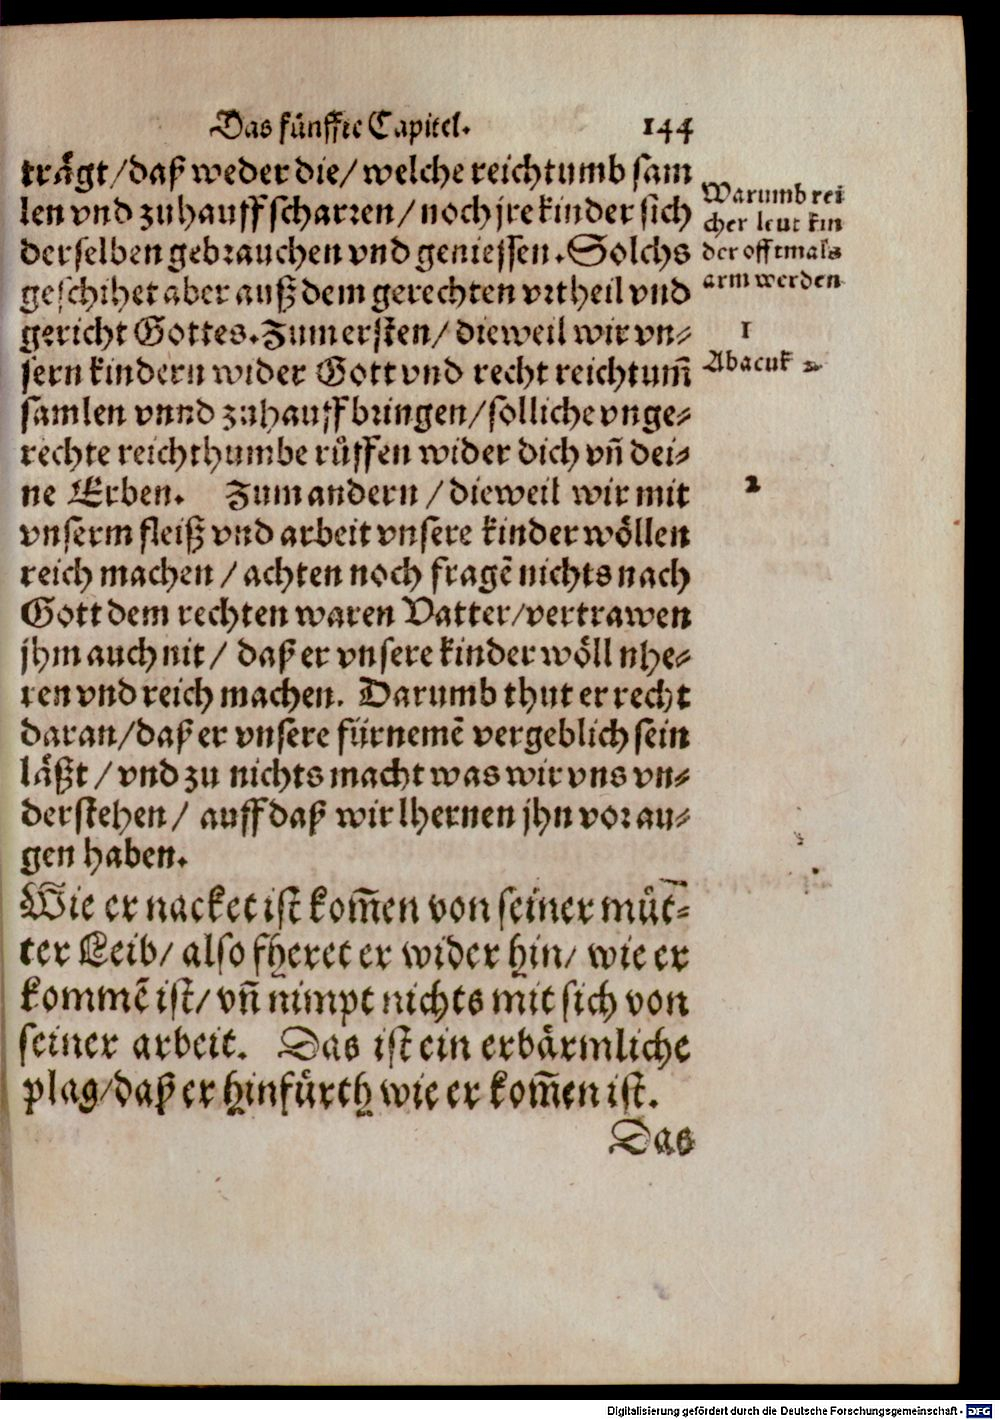 Das fünffte Capitel. 144
trägt/daß weder die/ welche reichtumb sam
len vnd zuhauff scharren/ noch jre kinder sich
derselben gebrauchen vnd geniessen. Solchs
geschihet aber auß dem gerechten vrtheil vnd
gericht Gottes. Zum ersten/ dieweil wir vn-
sern kindern wider Gott vnd recht reichtum̃
samlen vnnd zuhauff bringen/ solliche vnge-
rechte reichthumbe rüffen wider dich vñ dei-
ne Erben. Zum andern / dieweil wir mit
vnserm fleiß vnd arbeit vnsere kinder wöllen
reich machen / achten noch fragẽ nichts nach
Gott dem rechten waren Vatter/vertrawen
jhm auch nit/ daß er vnsere kinder wöll nhe-
ren vnd reich machen. Darumb thut er recht
daran/daß er vnsere fürnemẽ vergeblich sein
läßt / vnd zu nichts macht was wir vns vn-
derstehen/ auff daß wir lhernen jhn vor au-
gen haben.
Wie er nacket ist kom̃en von seiner müt-
ter Leib/ also fheret er wider hin/ wie er
kommẽ ist/ vñ nimpt nichts mit sich von
seiner arbeit. Das ist ein erbärmliche
plag/daß er hinfürth wie er kom̃en ist.
Das
Warumb rei
cher leut kin
der offtmals
arm werden
1
Abacuk 2.
2
Digitalisierung gefördert durch die Deutsche Forschungsgemeinschaft - DFG